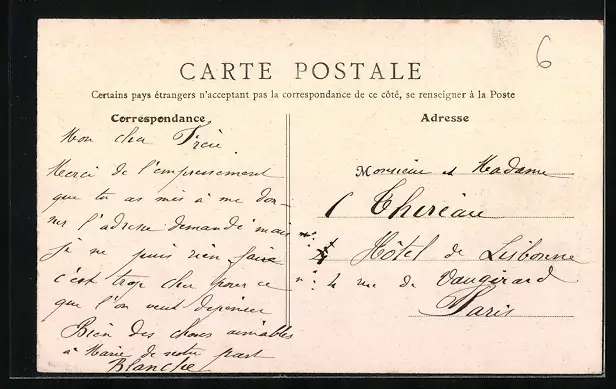 6
CARTE POSTALE
Certains pays étrangers n'acceptant pas la correspondance de ce côté, se renseigner à la Poste
Correspondance
Mon cher Frère
Merci de l'empressement
que tu as mis à me don-
ner l'adresse demandé mais
je ne puis rien faire
c'est trop cher pour ce
que l'on veut dépenser
Bien des choses aimables
à Marie de notre part
Blanche
Adresse
Monsieur et Madame
Thereau
Hôtel de Lisbonne
n: 4 rue de Vaugirard
Paris